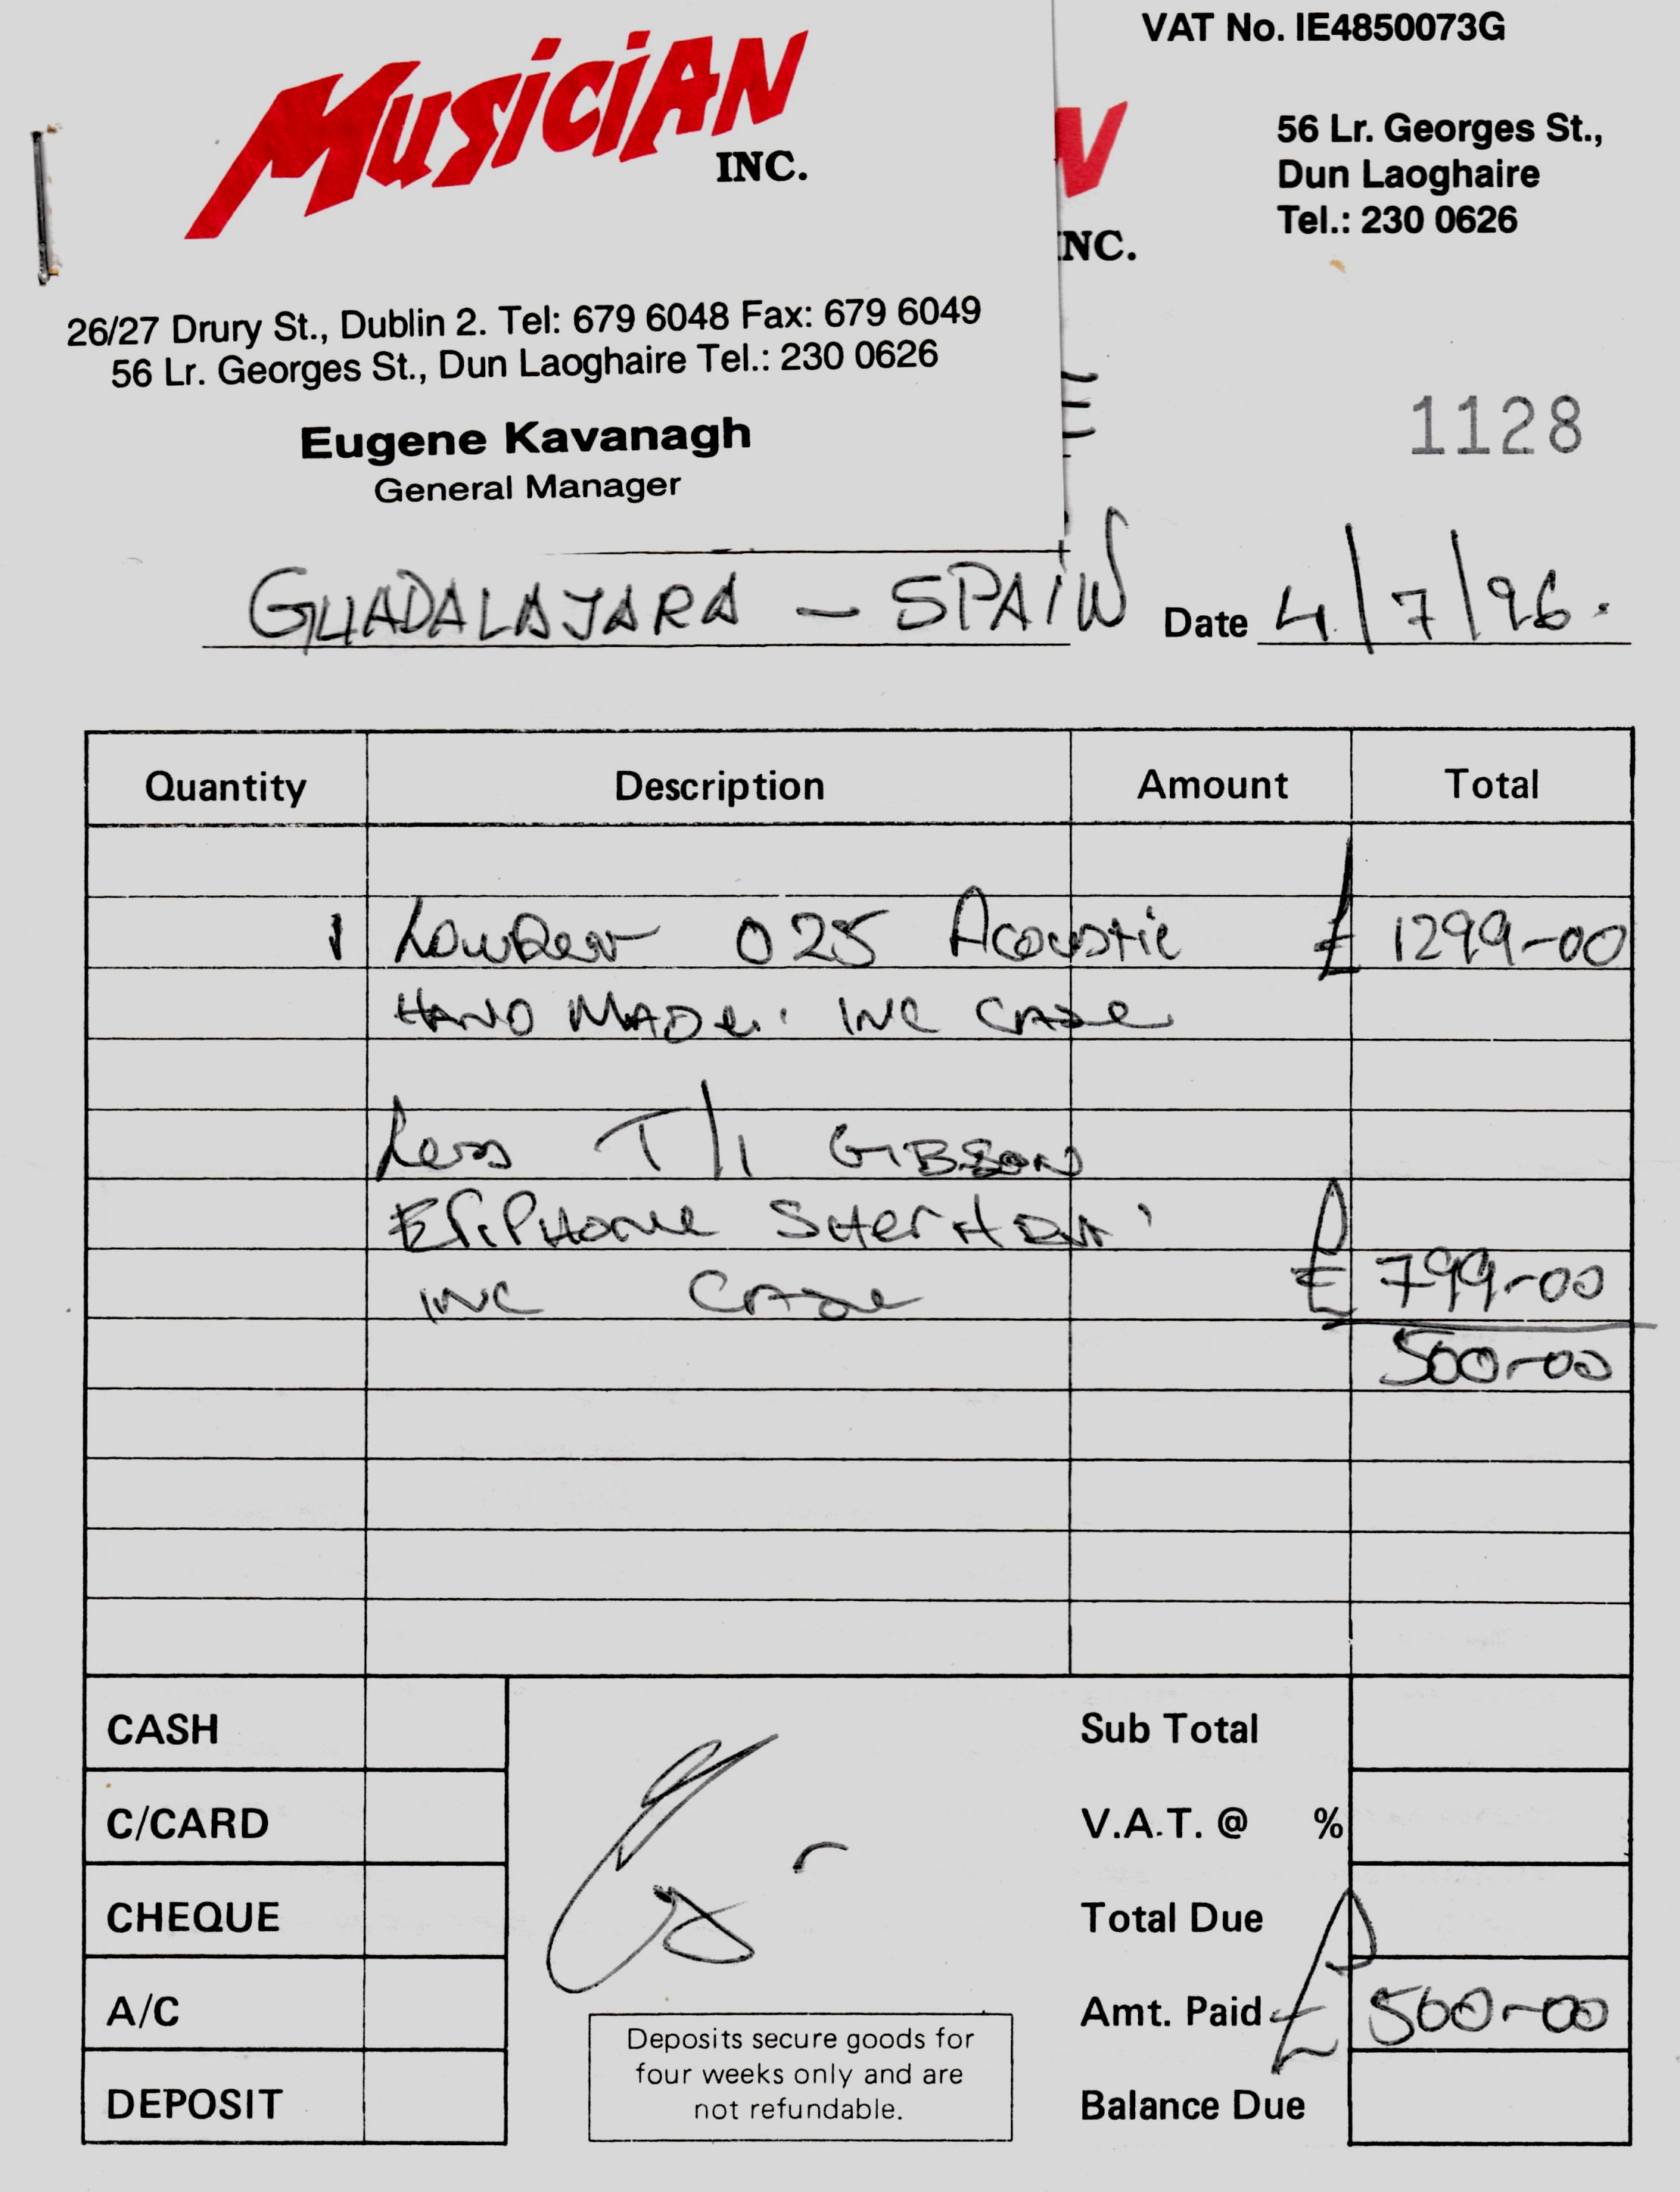 MUSICIAN
INC.
26/27 Drury St., Dublin 2. Tel: 679 6048 Fax: 679 6049
56 Lr. Georges St., Dun Laoghaire Tel.: 230 0626
Eugene Kavanagh
General Manager
VAT No. IE4850073G
N
NC.
56 Lr. Georges St.,
Dun Laoghaire
Tel.: 230 0626
1128
GUADALAJARA - SPAIN Date 4/7/96.
Quantity Description Amount Total
1 Lowden 025 Acoustic £ 1299-00
HAND MADE. INC CASE
Less T/I GIBSON
EPIPHONE SHERIDAN
INC CASE £ 799-00
500-00
CASH
C/CARD
CHEQUE
A/C
DEPOSIT
Deposits secure goods for
four weeks only and are
not refundable.
Sub Total
V.A.T. @ %
Total Due
Amt. Paid £ 500-00
Balance Due